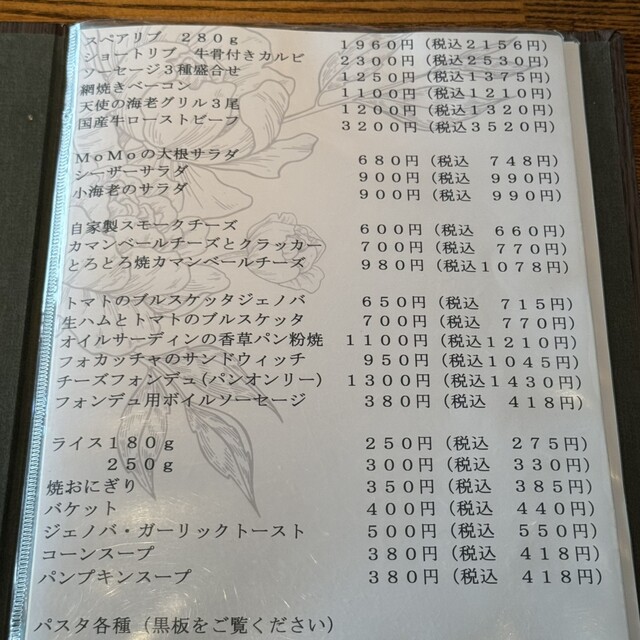 スペアリブ　２８０ｇ　１９６０円（税込２１５６円）
ショートリブ　牛骨付きカルビ　２３００円（税込２５３０円）
ソーセージ３種盛合せ　１２５０円（税込１３７５円）
網焼きベーコン　１１００円（税込１２１０円）
天使の海老グリル３尾　１２００円（税込１３２０円）
国産牛ローストビーフ　３２００円（税込３５２０円）
ＭｏＭｏの大根サラダ　６８０円（税込　７４８円）
シーザーサラダ　９００円（税込　９９０円）
小海老のサラダ　９００円（税込　９９０円）
自家製スモークチーズ　６００円（税込　６６０円）
カマンベールチーズとクラッカー　７００円（税込　７７０円）
とろとろ焼カマンベールチーズ　９８０円（税込１０７８円）
トマトのブルスケッタジェノバ　６５０円（税込　７１５円）
生ハムとトマトのブルスケッタ　７００円（税込　７７０円）
オイルサーディンの香草パン粉焼　１１００円（税込１２１０円）
フォカッチャのサンドウィッチ　９５０円（税込１０４５円）
チーズフォンデュ(パンオンリー)　１３００円（税込１４３０円）
フォンデュ用ボイルソーセージ　３８０円（税込　４１８円）
ライス１８０ｇ　２５０円（税込　２７５円）
２５０ｇ　３００円（税込　３３０円）
焼おにぎり　３５０円（税込　３８５円）
バケット　４００円（税込　４４０円）
ジェノバ・ガーリックトースト　５００円（税込　５５０円）
コーンスープ　３８０円（税込　４１８円）
パンプキンスープ　３８０円（税込　４１８円）
パスタ各種（黒板をご覧ください）